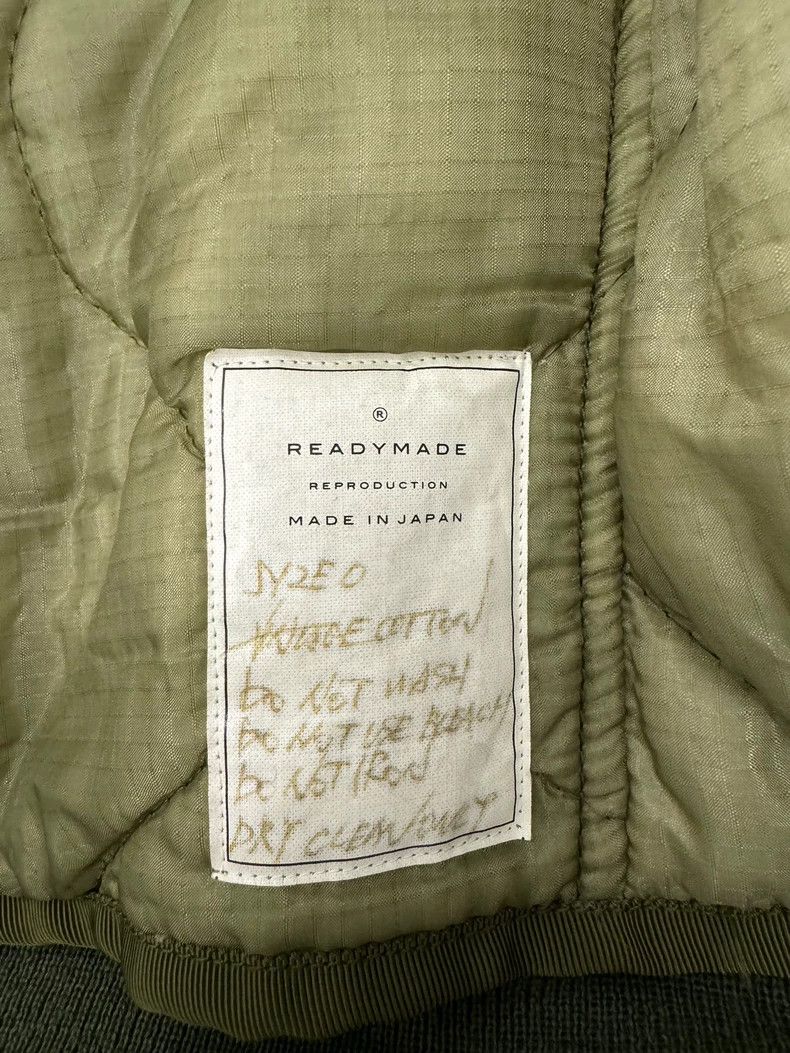 ®
READYMADE
REPRODUCTION
MADE IN JAPAN
SIZE 0
VINTAGE COTTON
DO NOT WASH
DO NOT USE BLEACH
DO NOT IRON
DRY CLEAN/ONLY